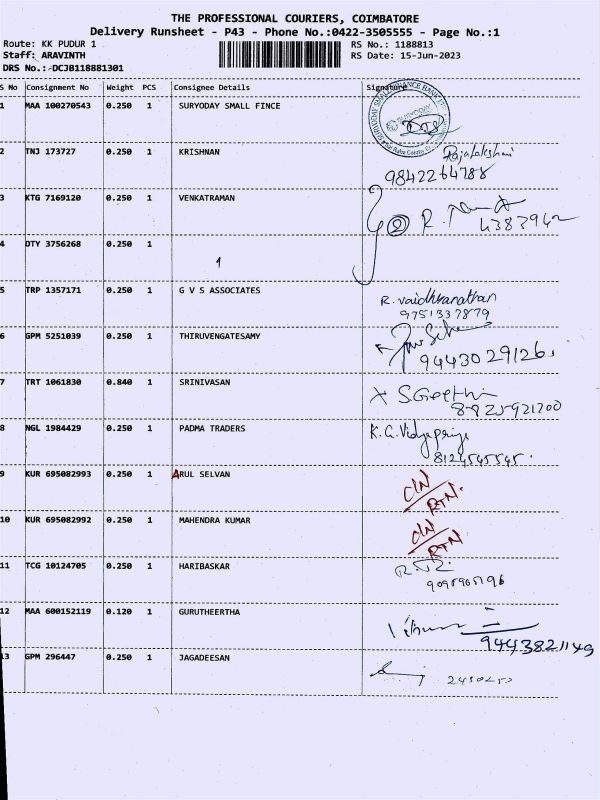 THE PROFESSIONAL COURIERS, COIMBATORE
Delivery Runsheet - P43 - Phone No.:0422-3505555 - Page No.:1
Route: KK PUDUR 1 RS No.: 1188813
Staff: ARAVINTH RS Date: 15-Jun-2023
DRS No.:-DCJB118881301
S No Consignment No Weight PCS Consignee Details Signature
1 MAA 100270543 0.250 1 SURYODAY SMALL FINCE
SURYODAY
2 TNJ 173727 0.250 1 KRISHNAN Rajalakshmi
9842264788
3 KTG 7169120 0.250 1 VENKATRAMAN 2 R.
4383942
4 DTY 3756268 0.250 1
1
5 TRP 1357171 0.250 1 G V S ASSOCIATES R. Vaidhyanathan
9751337879
6 GPM 5251039 0.250 1 THIRUVENGATESAMY
9443029126
7 TRT 1061830 0.840 1 SRINIVASAN X S.Geethi
8825921700
8 NGL 1984429 0.250 1 PADMA TRADERS K.G. Vidyapriya
8124545545.
9 KUR 695082993 0.250 1 ARUL SELVAN C/N
RTN.
10 KUR 695082992 0.250 1 MAHENDRA KUMAR C/N
RTN
11 TCG 10124705 0.250 1 HARIBASKAR
9095905196
12 MAA 600152119 0.120 1 GURUTHEERTHA
9443821149
13 GPM 296447 0.250 1 JAGADEESAN
2430250